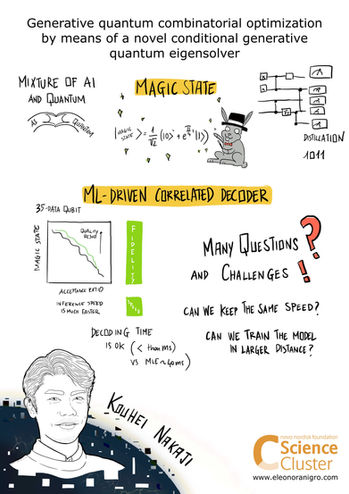 Generative quantum combinatorial optimization
by means of a novel conditional generative
quantum eigensolver
MIXTURE OF AI
AND QUANTUM
AI
QUANTUM
MAGIC STATE
|MAGIC STATE> = 1/√2 (|0> + e^{iπ/4} |1>)
DISTILLATION
1011
ML-DRIVEN CORRELATED DECODER
35-DATA QUBIT
MAGIC STATE
QUALITY
ACCEPTANCE RATIO
FIDELITY
INFERENCE SPEED
IS MUCH FASTER
DECODING TIME
IS OK (< than ms)
VS MLE ~40ms
MANY QUESTIONS?
AND CHALLENGES!
CAN WE KEEP THE SAME SPEED?
CAN WE TRAIN THE MODEL
IN LARGER DISTANCE?
KOUHEI NAKAJI
novo nordisk foundation
Science
Cluster
www.eleonoranigro.com